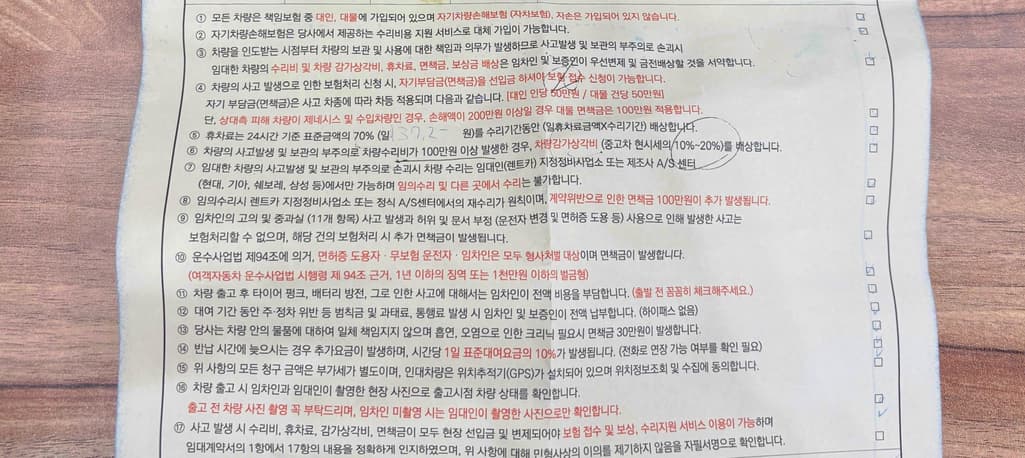 ① 모든 차량은 책임보험 중 대인, 대물에 가입되어 있으며 자기차량손해보험 (자차보험), 자손은 가입되어 있지 않습니다.
② 자기차량손해보험은 당사에서 제공하는 수리비용 지원 서비스로 대체 가입이 가능합니다.
③ 차량을 인도받는 시점부터 차량의 보관 및 사용에 대한 책임과 의무가 발생하므로 사고발생 및 보관의 부주의로 손괴시
임대한 차량의 수리비 및 차량 감가상각비, 휴차료, 면책금, 보상금 배상은 임차인 및 보증인이 우선변제 및 금전배상할 것을 서약합니다.
④ 차량의 사고 발생으로 인한 보험처리 신청 시, 자기부담금(면책금)을 선입금 하셔야 보험 접수 신청이 가능합니다.
자기 부담금(면책금)은 사고 차종에 따라 차등 적용되며 다음과 같습니다. [대인 인당 50만원 / 대물 건당 50만원]
단, 상대측 피해 차량이 제네시스 및 수입차량인 경우, 손해액이 200만원 이상일 경우 대물 면책금은 100만원 적용합니다.
⑤ 휴차료는 24시간 기준 표준금액의 70% (일 원)를 수리기간동안 (일휴차료금액X수리기간) 배상합니다.
⑥ 차량의 사고발생 및 보관의 부주의로 차량수리비가 100만원 이상 발생한 경우, 차량감가상각비 (중고차 현시세의 10%~20%)를 배상합니다.
⑦ 임대한 차량의 사고발생 및 보관의 부주의로 손괴시 차량 수리는 임대인(렌트카) 지정정비사업소 또는 제조사 A/S 센터
(현대, 기아, 쉐보레, 삼성 등)에서만 가능하며 임의수리 및 다른 곳에서 수리는 불가합니다.
⑧ 임의수리시 렌트카 지정정비사업소 또는 정식 A/S센터에서의 재수리가 원칙이며, 계약위반으로 인한 면책금 100만원이 추가 발생됩니다.
⑨ 임차인의 고의 및 중과실 (11개 항목) 사고 발생과 허위 및 문서 부정 (운전자 변경 및 면허증 도용 등) 사용으로 인해 발생한 사고는
보험처리할 수 없으며, 해당 건의 보험처리 시 추가 면책금이 발생됩니다.
⑩ 운수사업법 제94조에 의거, 면허증 도용자 · 무보험 운전자 · 임차인은 모두 형사처벌 대상이며 면책금이 발생합니다.
(여객자동차 운수사업법 시행령 제 94조 근거, 1년 이하의 징역 또는 1천만원 이하의 벌금형)
⑪ 차량 출고 후 타이어 펑크, 배터리 방전, 그로 인한 사고에 대해서는 임차인이 전액 비용을 부담합니다. (출발 전 꼼꼼히 체크해주세요.)
⑫ 대여 기간 동안 주·정차 위반 등 범칙금 및 과태료, 통행료 발생 시 임차인 및 보증인이 전액 납부합니다. (하이패스 없음)
⑬ 당사는 차량 안의 물품에 대하여 일체 책임지지 않으며 흡연, 오명으로 인한 크리닉 필요시 면책금 30만원이 발생합니다.
⑭ 반납 시간에 늦으시는 경우 추가요금이 발생하며, 시간당 1일 표준대여요금의 10%가 발생됩니다. (전화로 연장 가능 여부를 확인 필요)
⑮ 위 사항의 모든 청구 금액은 부가세가 별도이며, 인대차량은 위치추적기(GPS)가 설치되어 있으며 위치정보조회 및 수집에 동의합니다.
⑯ 차량 출고 시 임차인과 임대인이 촬영한 현장 사진으로 출고시점 차량 상태를 확인합니다.
출고 전 차량 사진 촬영 꼭 부탁드리며, 임차인 미촬영 시는 임대인이 촬영한 사진으로만 확인합니다.
⑰ 사고 발생 시 수리비, 휴차료, 감가상각비, 면책금이 모두 현장 선입금 및 변제되어야 보험 접수 및 보상, 수리지원 서비스 이용이 가능하며
임대계약서의 1항에서 17항의 내용을 정확하게 인지하였으며, 위 사항에 대해 민형사상의 이의를 제기하지 않음을 자필서명으로 확인합니다.